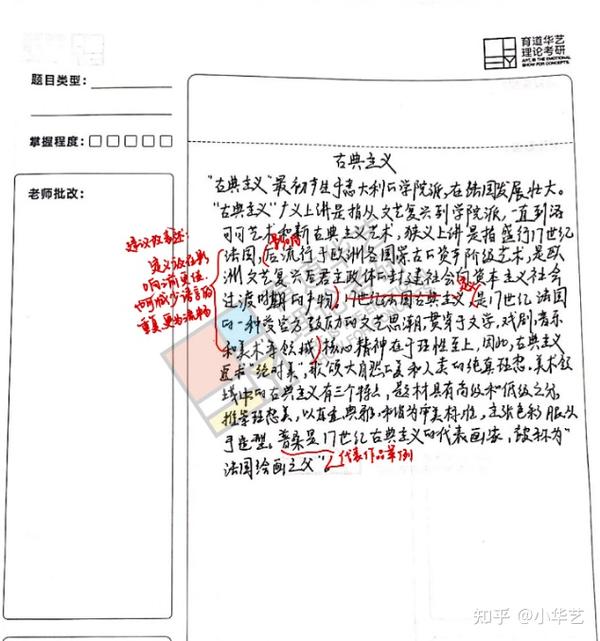 育道华艺
理论考研
ART, IS THE EMOTIONAL
SHOW FOR CONCEPTS.
题目类型：
掌握程度：
老师批改：
古典主义
"古典主义"最初产生于意大利的学院派，在法国发展壮大。
"古典主义"广义上讲是指从文艺复兴到学院派，一直到洛
可可艺术和新古典主义艺术，狭义上讲是指盛行17世纪
法国，后流行于欧洲各国蒙古的资产阶级艺术，是欧
洲文艺复兴后君主政体的封建社会向资本主义社会
过渡时期的产物，17世纪法国古典主义是17世纪法国
的一种受官方致力的文艺思潮，贯穿于文学，戏剧，音乐
和美术等领域，核心精神在于理性至上，因此，古典主义
追求"绝对美"，歌颂大自然之美和人类的绝算理想。美术领
域中的古典主义有三个特点，题材具有高级和低级之分，
推崇理想美，以庄重典雅，和谐为审美标准，主张色彩服从
于造型。普桑是17世纪古典主义的代表画家，被称为"
法国绘画之父"。
建议改表述：
定义放在影
响前更佳，
也可减少语言的
重复，更为流畅
代表作品举例
知乎 @小华艺